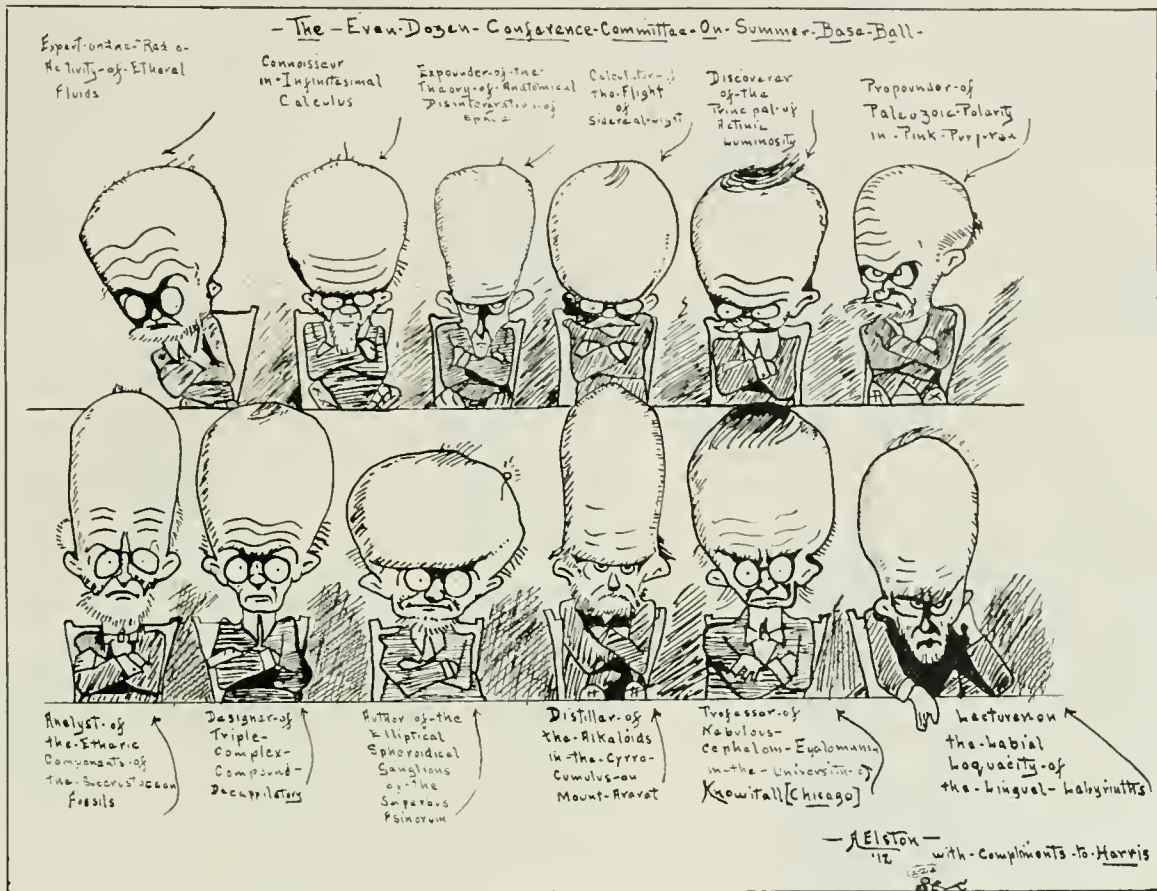 - The - Even - Dozen - Conference - Committee - On - Summer - Base - Ball -
Activity - of - Etheral
Fluids
Connoisseur
in - Infinitesimal
Calculus
Expounder - of - the
Theory - of - Anatomical
of
Calculator - of
the Flight
of
Sidereal
Discoverer
of the
Principal - of
Actinic
Luminosity
Propounder - of
Paleozoic - Polarity
in - Pink
Analyst - of
the - Etharic
Components of
the
Fossils
Designer - of
Triple -
Complex -
Compound -
Decappilatory
Author - of - the
Elliptical
Spheroidical
Ganglions
of - the
Superbus
Distillar - of
the - Alkaloids
in - the - Cyrro -
Cumulus - on
Mount - Ararat
Professor - of
Nabulous -
in - the - University - of
Knowitall [Chicago]
Lecturer on
the - Labial
Loquacity - of
the - Lingual - Labyrinths
- A Elston -
'12
with - Compliments - to - Harris